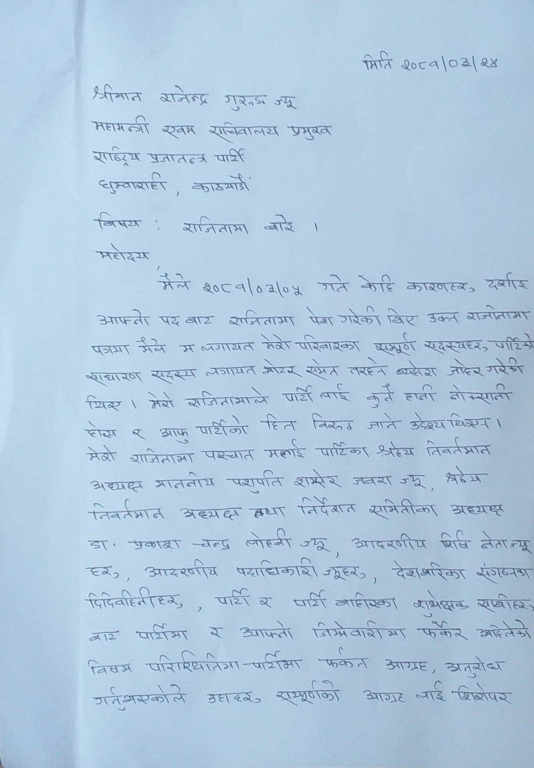 मिति २०८१/०३/२४
श्रीमान राजेन्द्र गुरुङ ज्यू
महामन्त्री एवम सचिवालय प्रमुख
राष्ट्रिय प्रजातन्त्र पार्टी
धुम्वाराही, काठमाडौं
विषय : राजिनामा बारे ।
महोदय,
मैले २०८१/०३/०५ गते केहि कारणहरु दर्शाइ
आफ्नो पद बाट राजिनामा पेश गरेकी थिए उक्त राजीनामा
पत्रमा मैले म लगायत मेरो परिवारका सम्पूर्ण सदस्यहरु पार्टिको
साधारण सदस्य लगायत समेत नरहने व्यहोरा जाहेर गरेकी
थिए । मेरो राजिनामाले पार्टी लाई कुनै हानी नोक्सानी
होस र आफु पार्टीको हित विरुद्ध जाने उद्देश्य थिएन ।
मेरो राजिनामा पश्चात मलाई पार्टिका श्रद्धेय निवर्तमान
अध्यक्ष माननीय पशुपति शमशेर जवरा ज्यू, श्रद्धेय
निवर्तमान अध्यक्ष तथा निर्देशन समितीका अध्यक्ष
डा. प्रकाश चन्द्र लोहनी ज्यू, आदरणीय शिर्ष नेताज्यू
हरु, आदरणीय पदाधिकारी ज्यूहरु, देशभरिका संगठनका
दिदिबहिनीहरु, पार्टी र पार्टी बाहीरका शुभेक्षक साथीहरु
बाट पार्टीमा र आफ्नो जिम्मेवारीमा फर्केर अहिलेको
विषम परिस्थितिमा पार्टीमा फर्कन आग्रह, अनुरोध
गर्नुभएकोले उहाहरु सम्पूर्णको आग्रह लाई शिरोपर